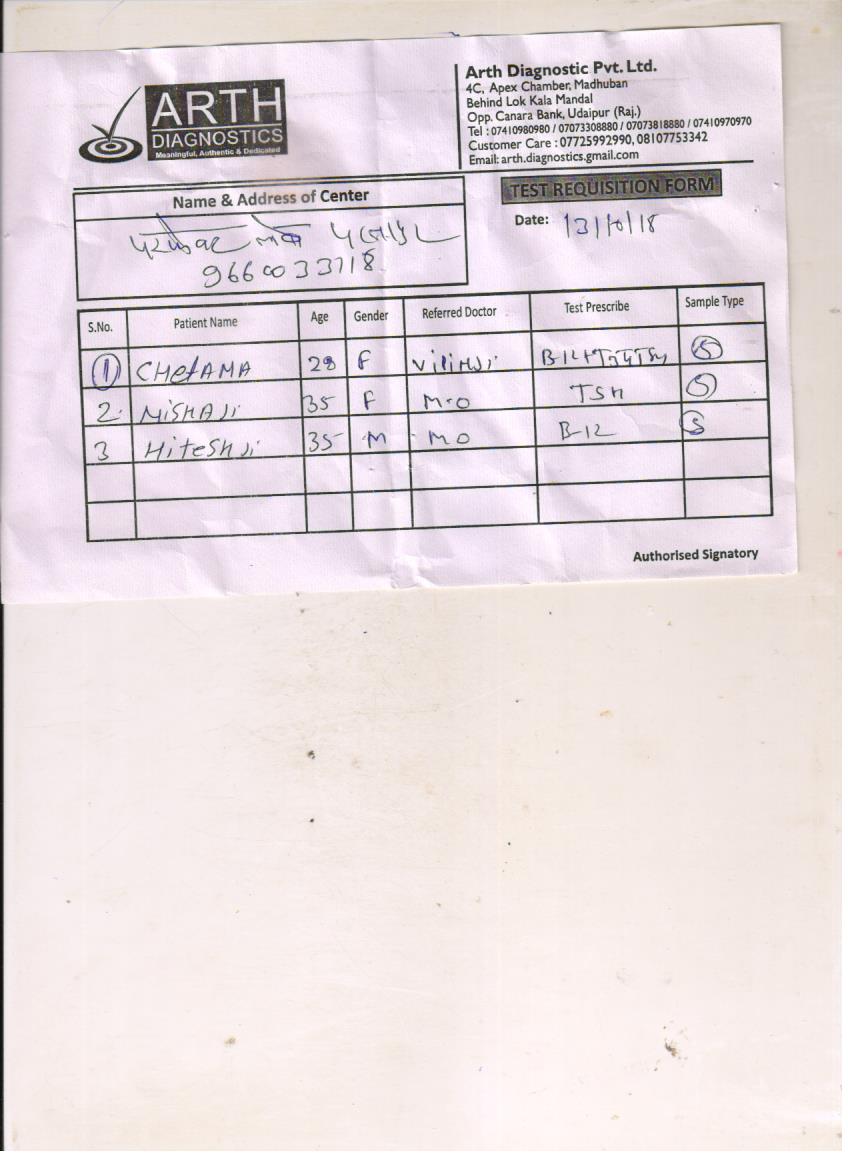 ARTH
DIAGNOSTICS
Meaningful, Authentic & Dedicated
Arth Diagnostic Pvt. Ltd.
4C, Apex Chamber, Madhuban
Behind Lok Kala Mandal
Opp. Canara Bank, Udaipur (Raj.)
Tel : 07410980980 / 07073308880 / 07073818880 / 07410970970
Customer Care : 07725992990, 08107753342
Email: arth.diagnostics.gmail.com
Name & Address of Center
9660033718
TEST REQUISITION FORM
Date: 13/10/18
S.No. Patient Name Age Gender Referred Doctor Test Prescribe Sample Type
1 CHetAMA 28 F B-12+ S
2. MISHAJi 35 F M-O TSH S
3 HiteSHJi 35 M MO B-12 S
Authorised Signatory